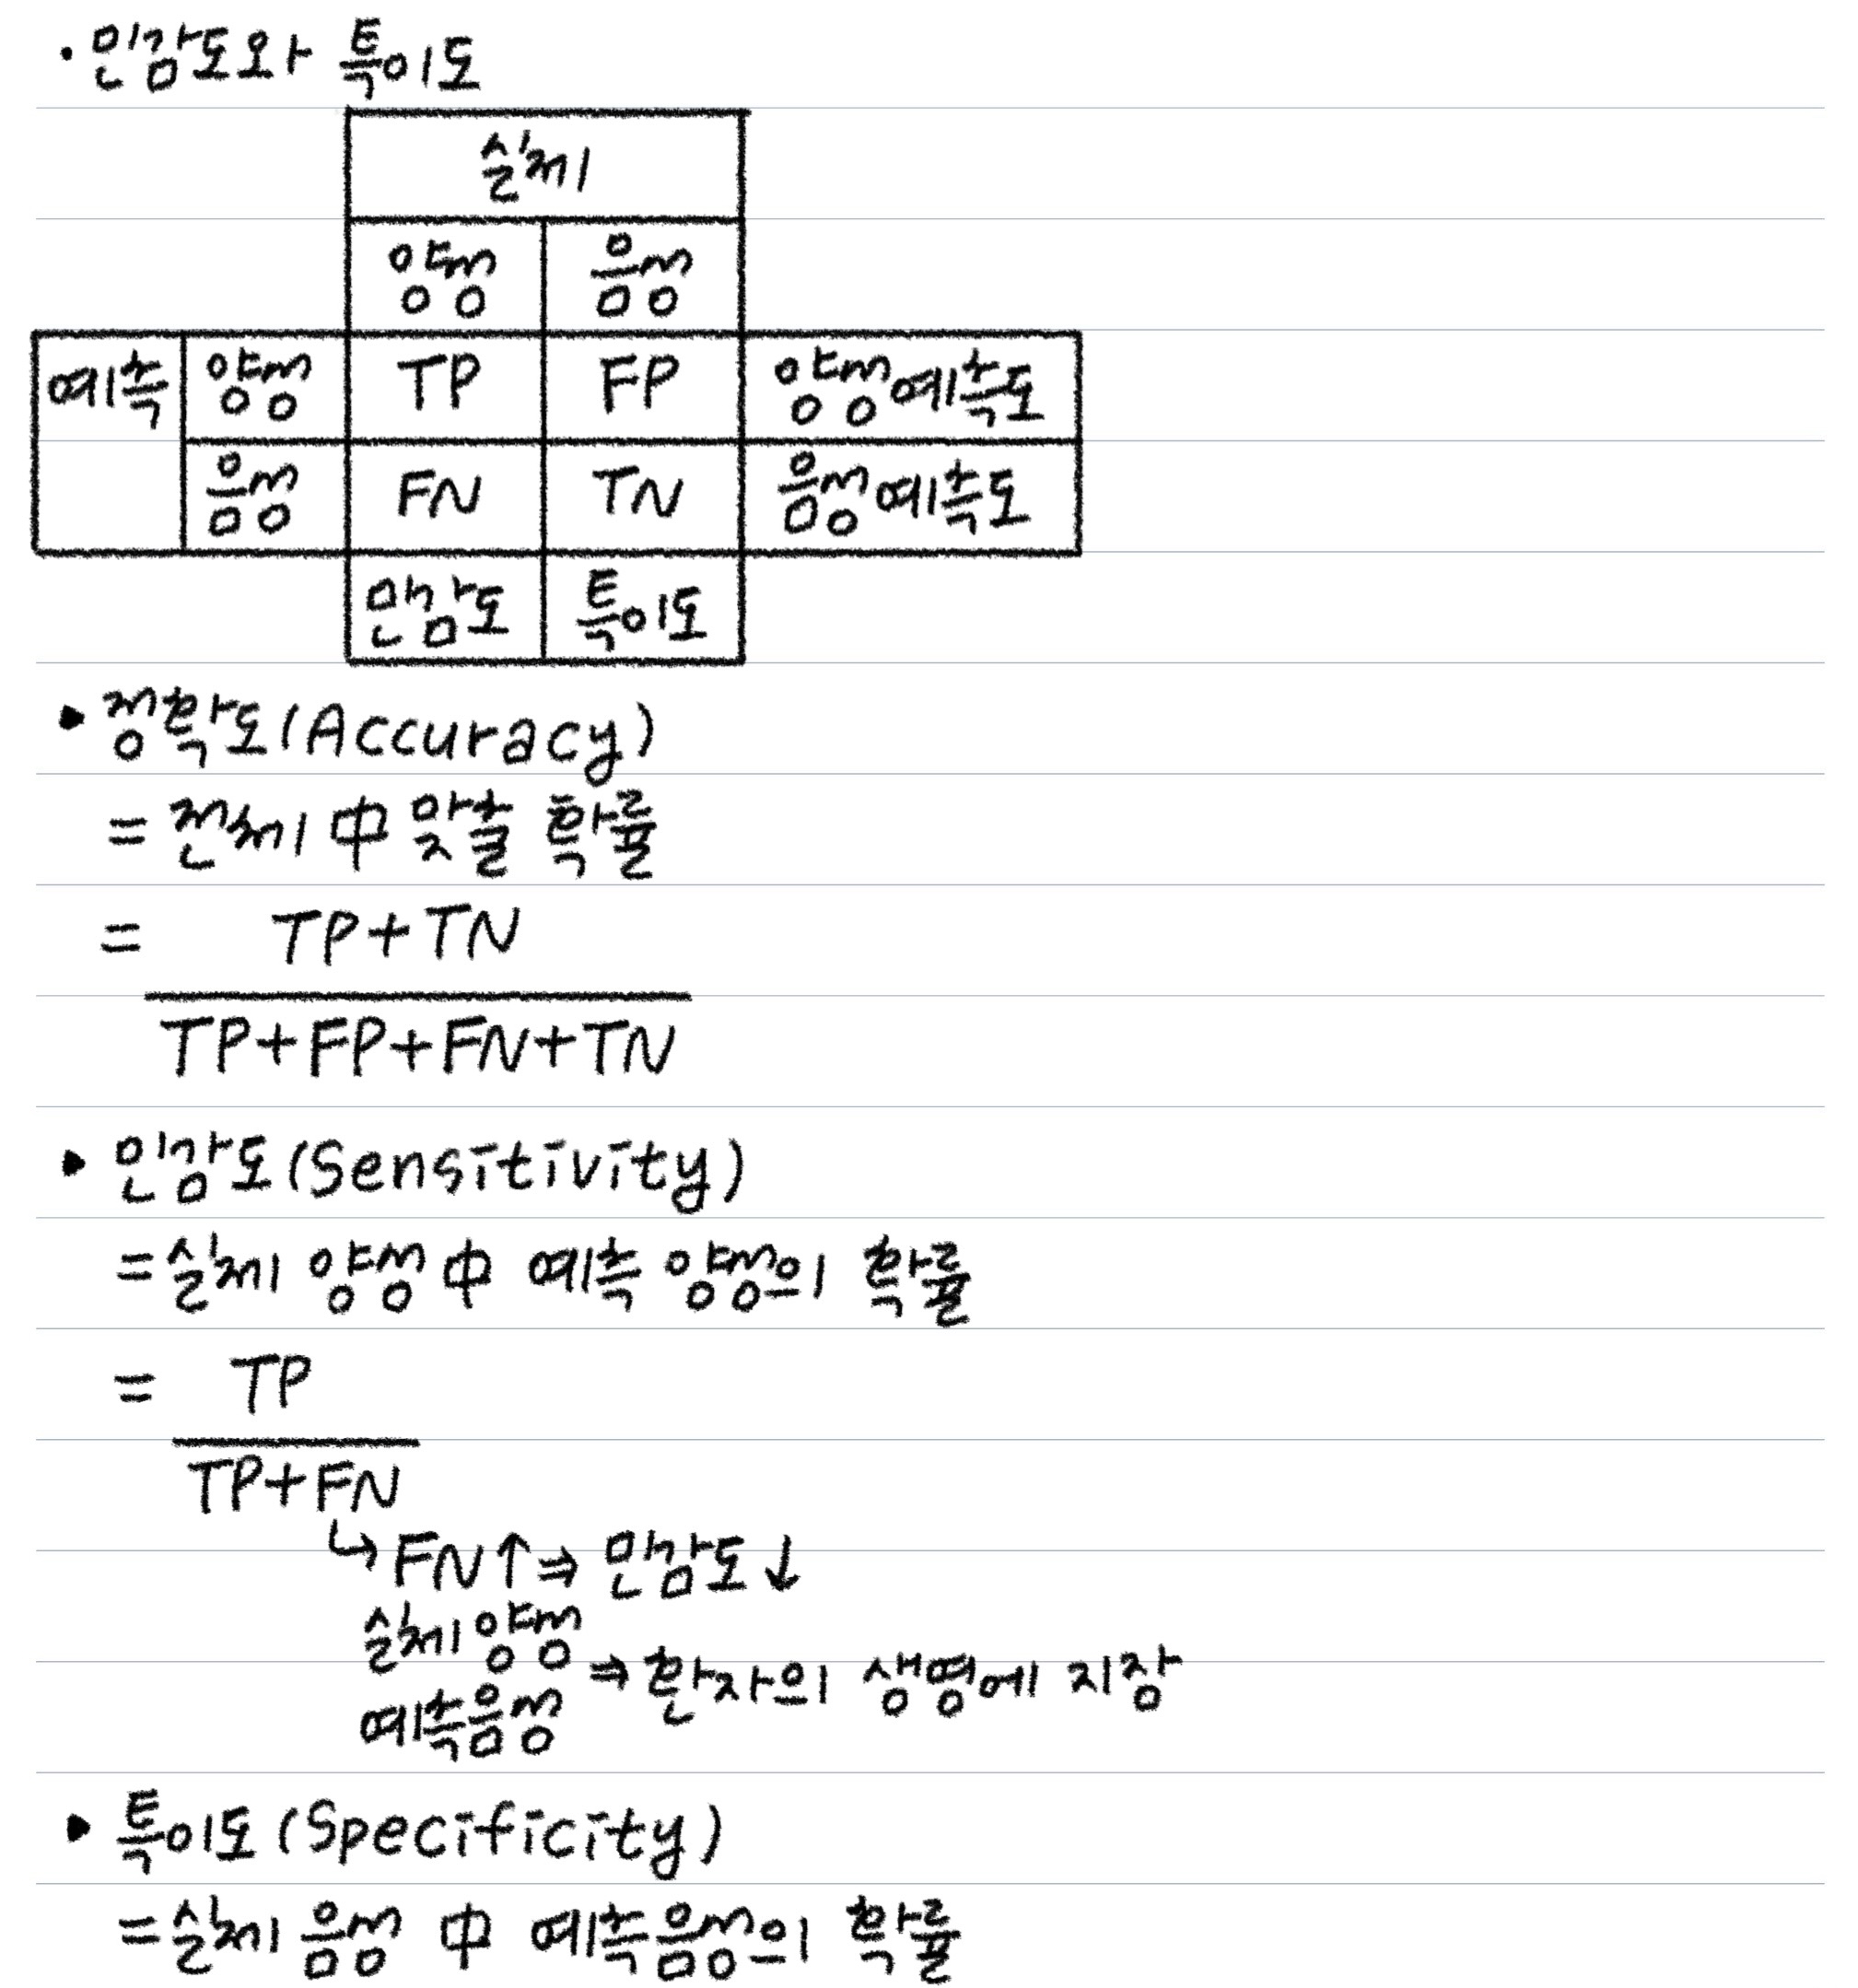 · 민감도와 특이도
실제
양성 음성
예측 양성 TP FP 양성예측도
음성 FN TN 음성예측도
민감도 특이도
• 정확도(Accuracy)
= 전체 中 맞출 확률
= TP+TN
TP+FP+FN+TN
• 민감도(Sensitivity)
=실제 양성 中 예측 양성의 확률
= TP
TP+FN
↳ FN↑⇒ 민감도↓
실제 양성
예측음성 ⇒환자의 생명에 지장
• 특이도(Specificity)
=실제 음성 中 예측음성의 확률